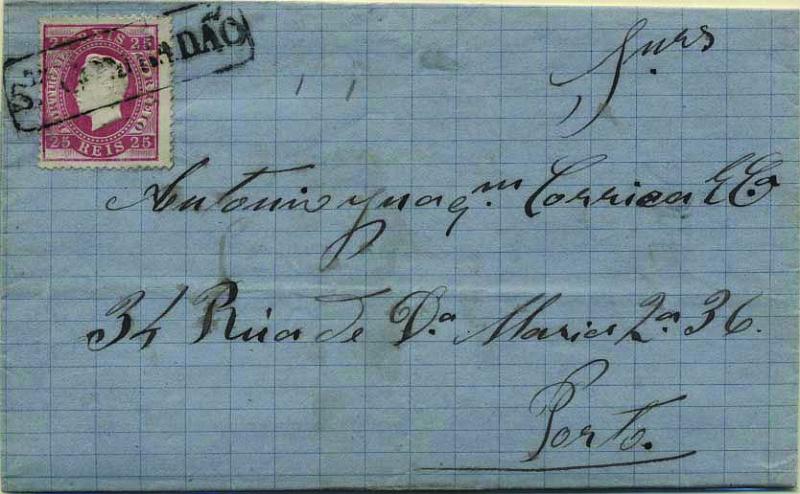 25 REIS 25
PORTUGAL
25 REIS 25
DÃO
Snrs
Antonio Joaqm Corriea & Ca
34 Rúa de Da Maria 2a 36.
Porto.